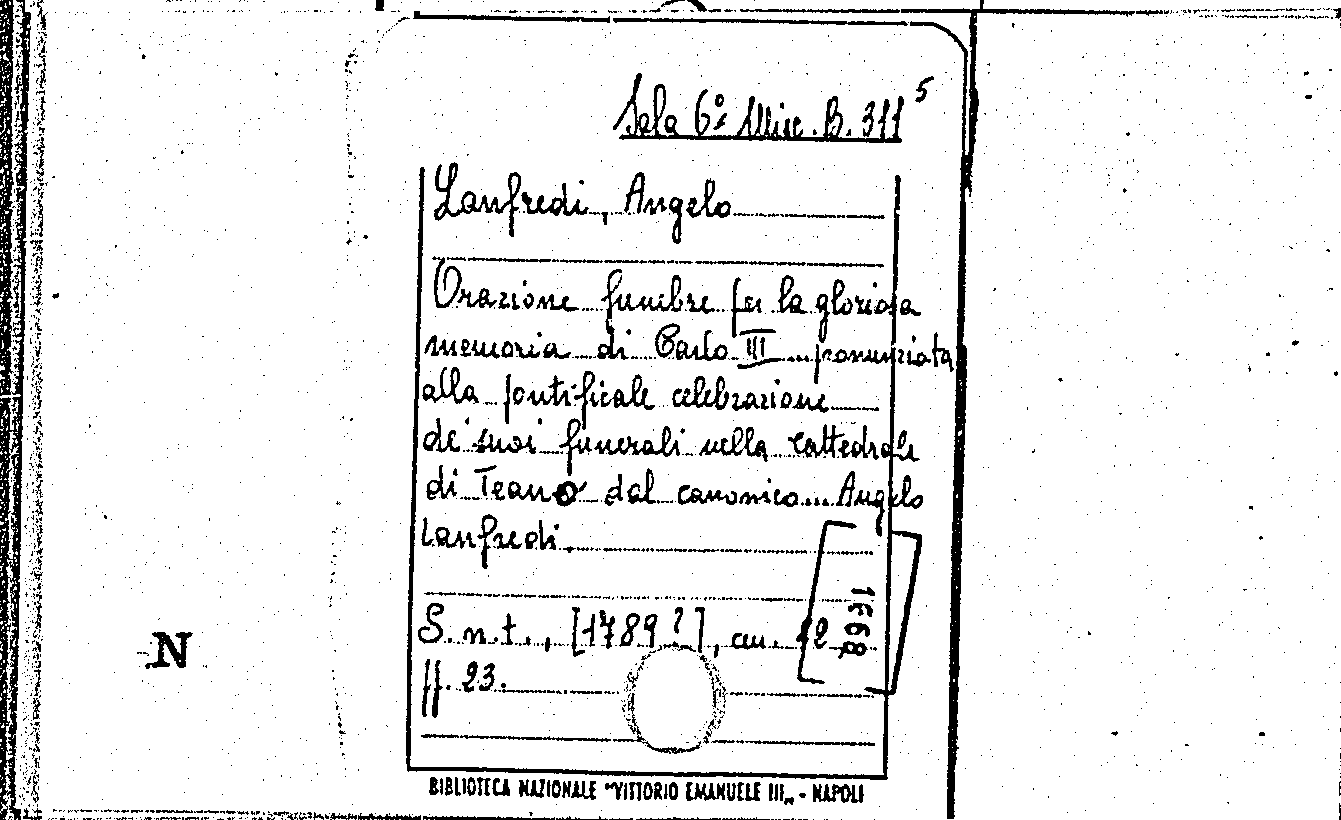 Sala 6ª Misc. B. 311⁵
Lanfredi, Angelo
Orazione funebre per la gloriosa
memoria di Carlo III ... pronunziata
alla pontificale celebrazione
de' suoi funerali nella Cattedrale
di Teano dal canonico... Angelo
Lanfredi.
S. n. t., [1789?], cm. 12
ff. 23.
1668
N
BIBLIOTECA NAZIONALE "VITTORIO EMANUELE III„ - NAPOLI